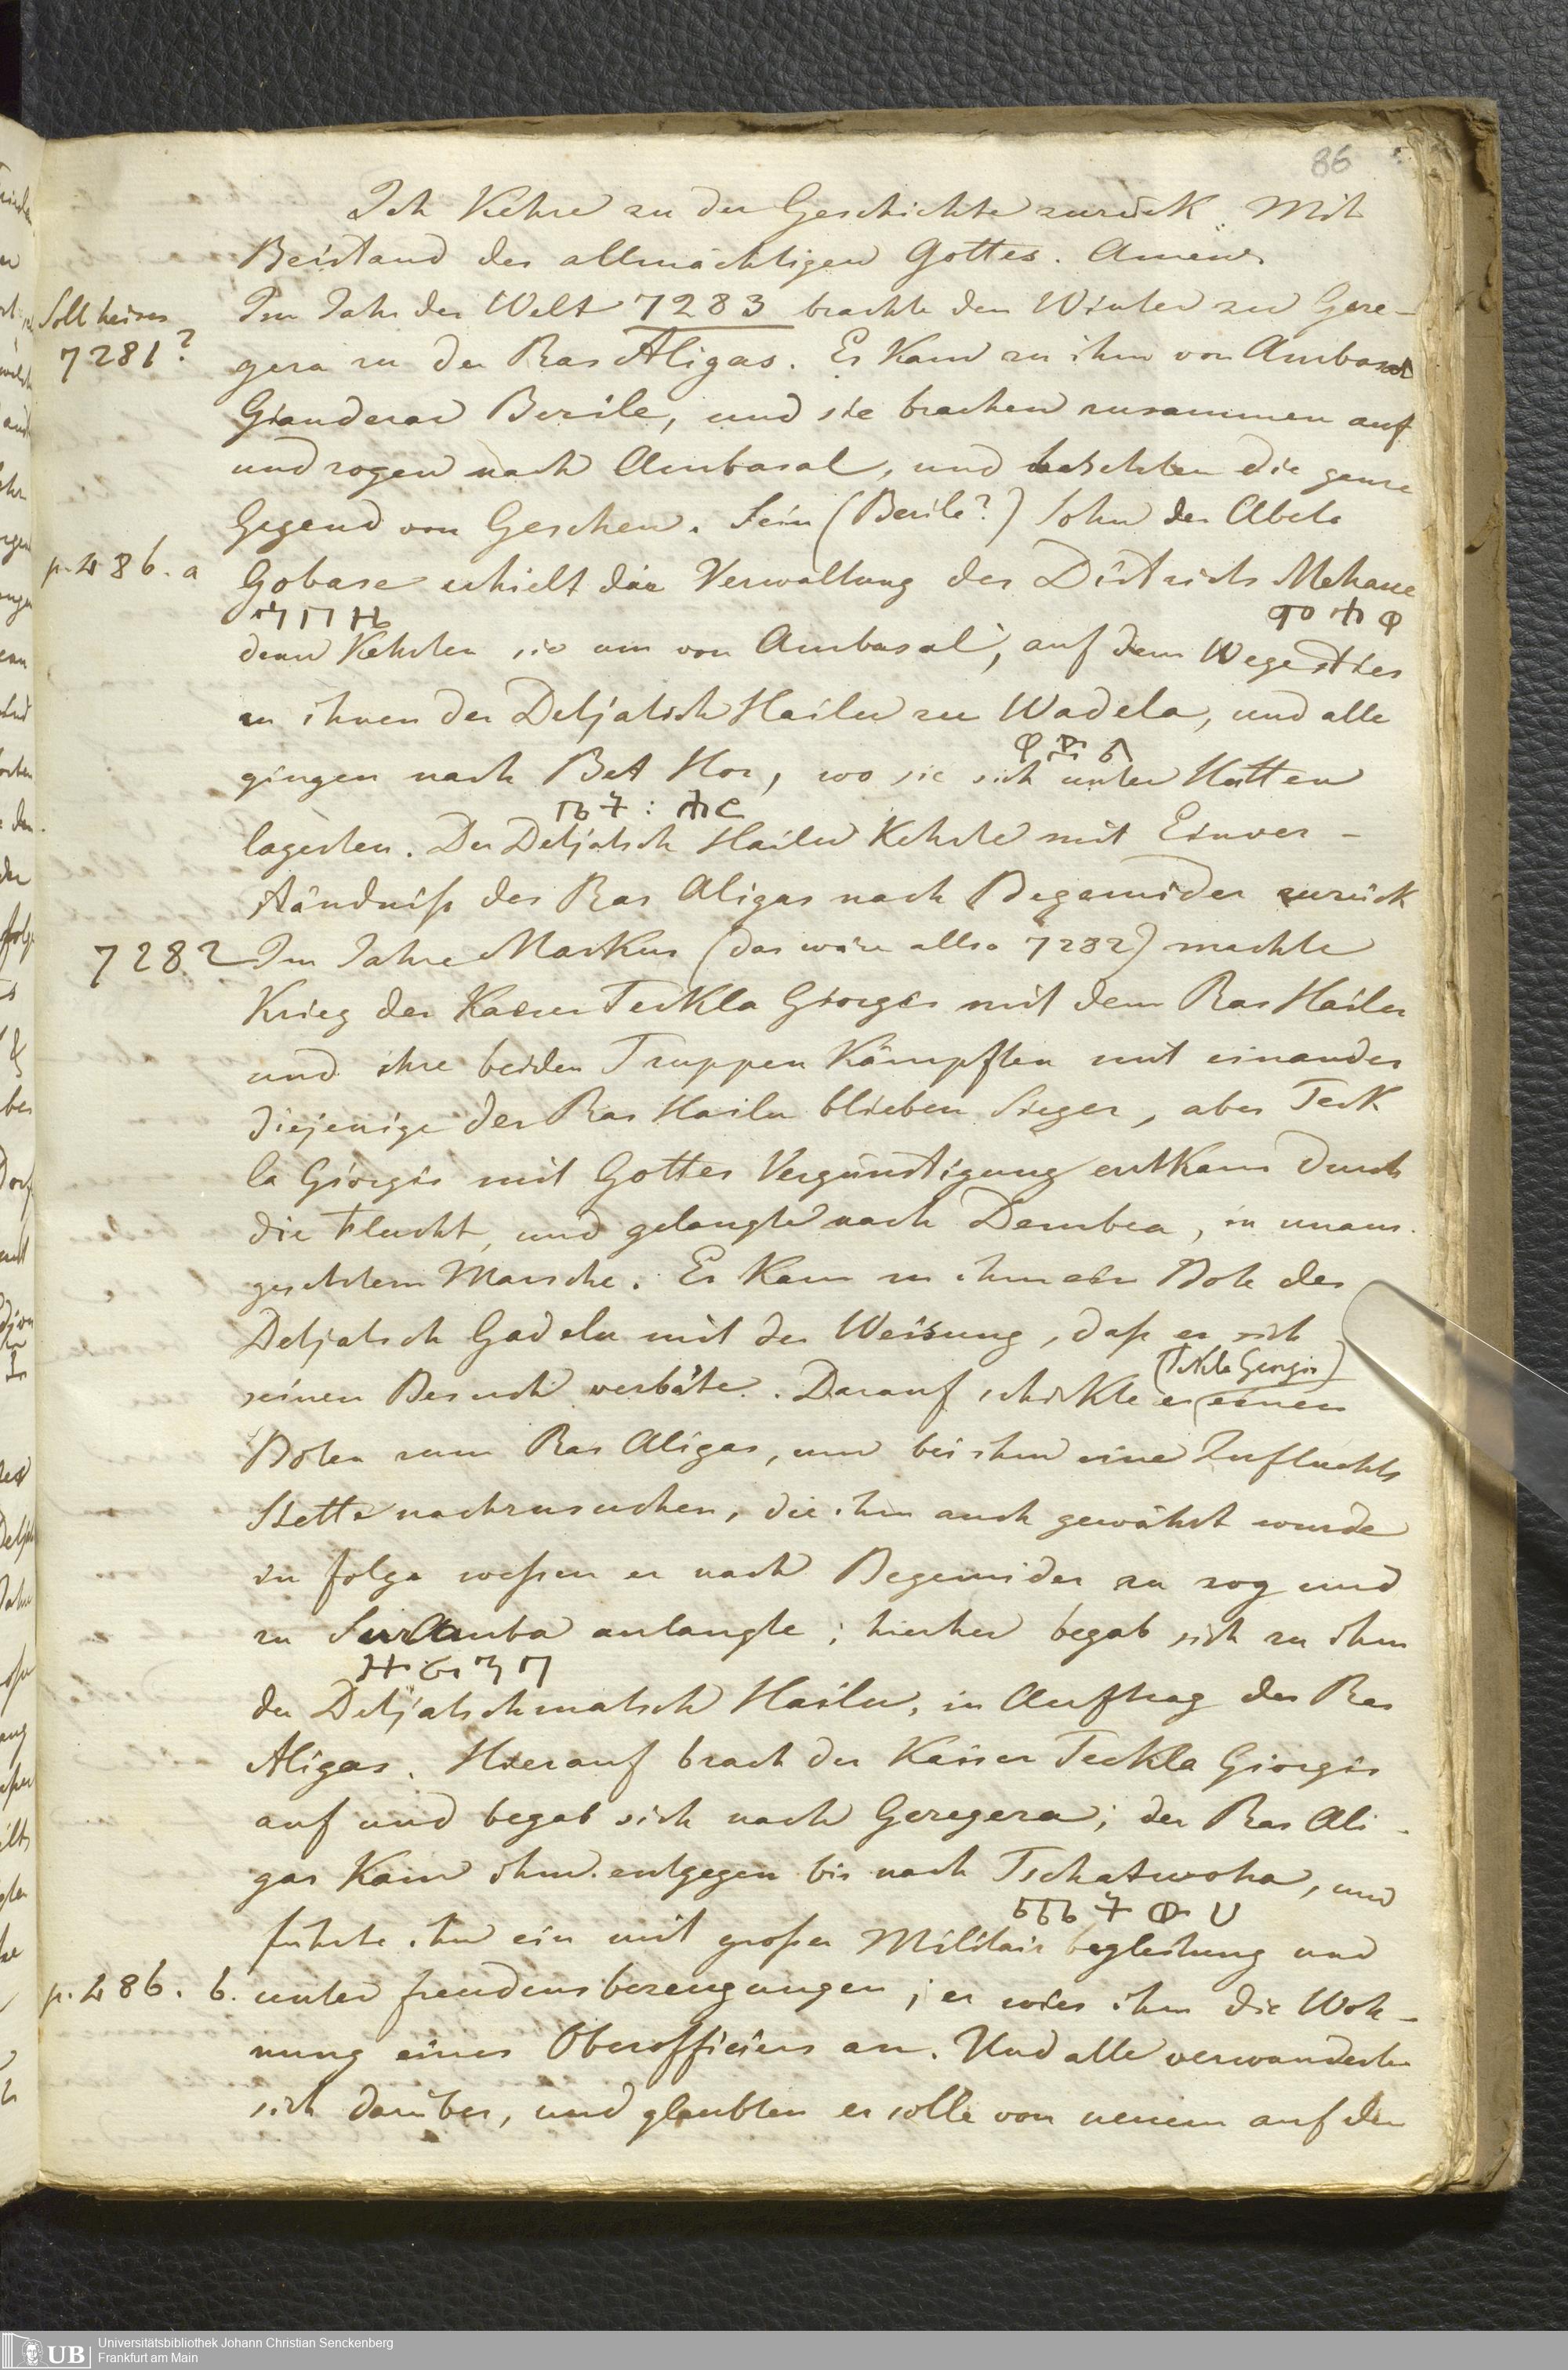 86
Ich Kehre zu der Geschichte zurück. Mit
Beistand des allmächtigen Gottes. Amen.
Soll heisen
7281?
Im Jahr der Welt 7283 brachte den Winter zu Gere-
gera zu der Ras Aligas. Es Kam zu ihm von Ambasal
Gianderar Berile, und sie brachen zusammen auf
und zogen nach Ambasal, und besetzten die ganze
Gegend von Geschen. Sein (Berile?) Sohn der Abeto
p. 486. a
Gobase erhielt die Verwaltung des Districts Mekane
ጎበዜ
መቅ
dann Kehrten sie um von Ambasal, auf dem Wege sties
zu ihnen der Detjatsch Hailu zu Wadela, und alle
ዋድላ
gingen nach Bet Hor, wo sie sich unter Hütten
ቤተ: ሖር
lagerten. Der Detjatsch Hailu Kehrte mit Einver-
ständniß des Ras Aligas nach Begemider zurück
7282
Im Jahre Markus (das wäre also 7282) machte
Krieg der Kaiser Teckla Giorgis mit dem Ras Hailu
und ihre beiden Truppen Kämpften mit einander
diejenige des Ras Hailu blieben Sieger, aber Teck
la Giorgis mit Gottes Vergünstigung entkam durch
die Flucht, und gelangte nach Dembea, in unaus-
gesetztem Marsche. Es Kam zu ihm ein Bote des
Detjatsch Gadelu mit der Weisung, daß er sich
seinen Besuch verbäte. Darauf schickte er einen
(Tekla Georgis)
Boten zum Ras Aligas, um bei ihm eine Zufluchts
Stette nachzusuchen, die ihm auch gewährt wurde
in folge weßen er nach Begemider zu zog und
zu Sur Amba anlangte; hierher begab sich zu ihm
der Detjatschmatsch Hailu, in Auftrag des Ras
Aligas. Hierauf brach der Kaiser Teckla Giorgis
auf und begab sich nach Geregera; der Ras Ali-
gas Kam ihm entgegen bis nach Tschatwoha, und
führte ihn ein mit großer Militair begleitung und
p. 486. b.
unter freudensbezeugungen; er wies ihm die Woh-
nung eines Oberofficiers an. Und alle verwunderten
sich darüber, und glaubten er solle von neuem auf den
UB
Universitätsbibliothek Johann Christian Senckenberg
Frankfurt am Main